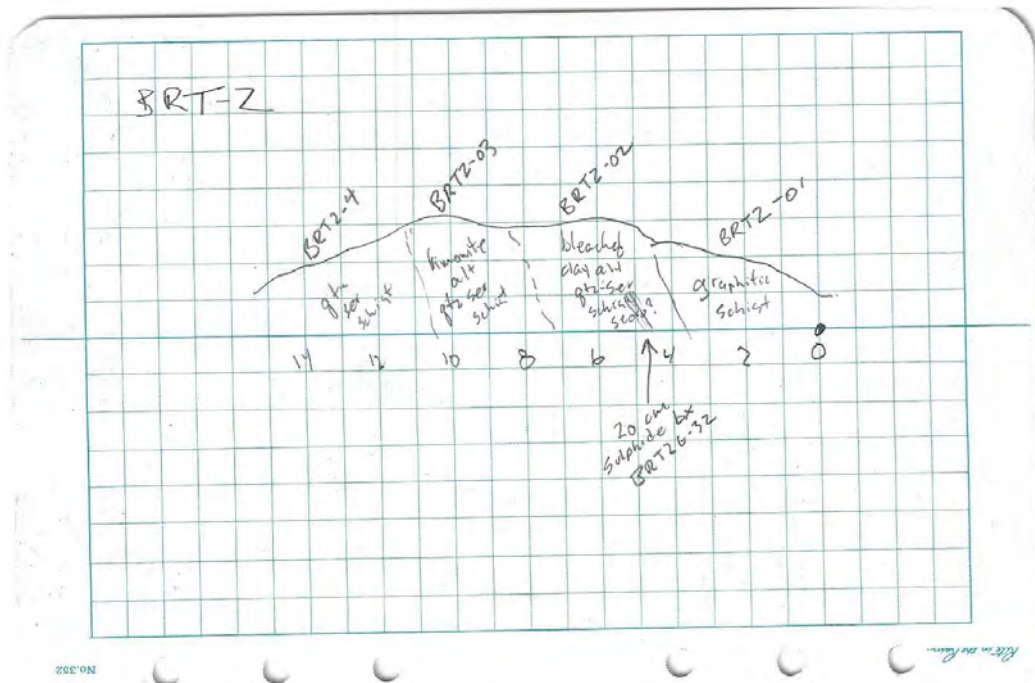 BRT-2
BRT2-4
BRT2-03
BRT2-02
BRT2-01
qtz
ser
schist
limonite
alt
qtz-ser
schist
bleached
clay alt
qtz-ser
schist
graphitic
schist
14 12 10 8 6 4 2 0
20 cm
sulphide bx
BRT26-32
No.352
Rite in the Rain